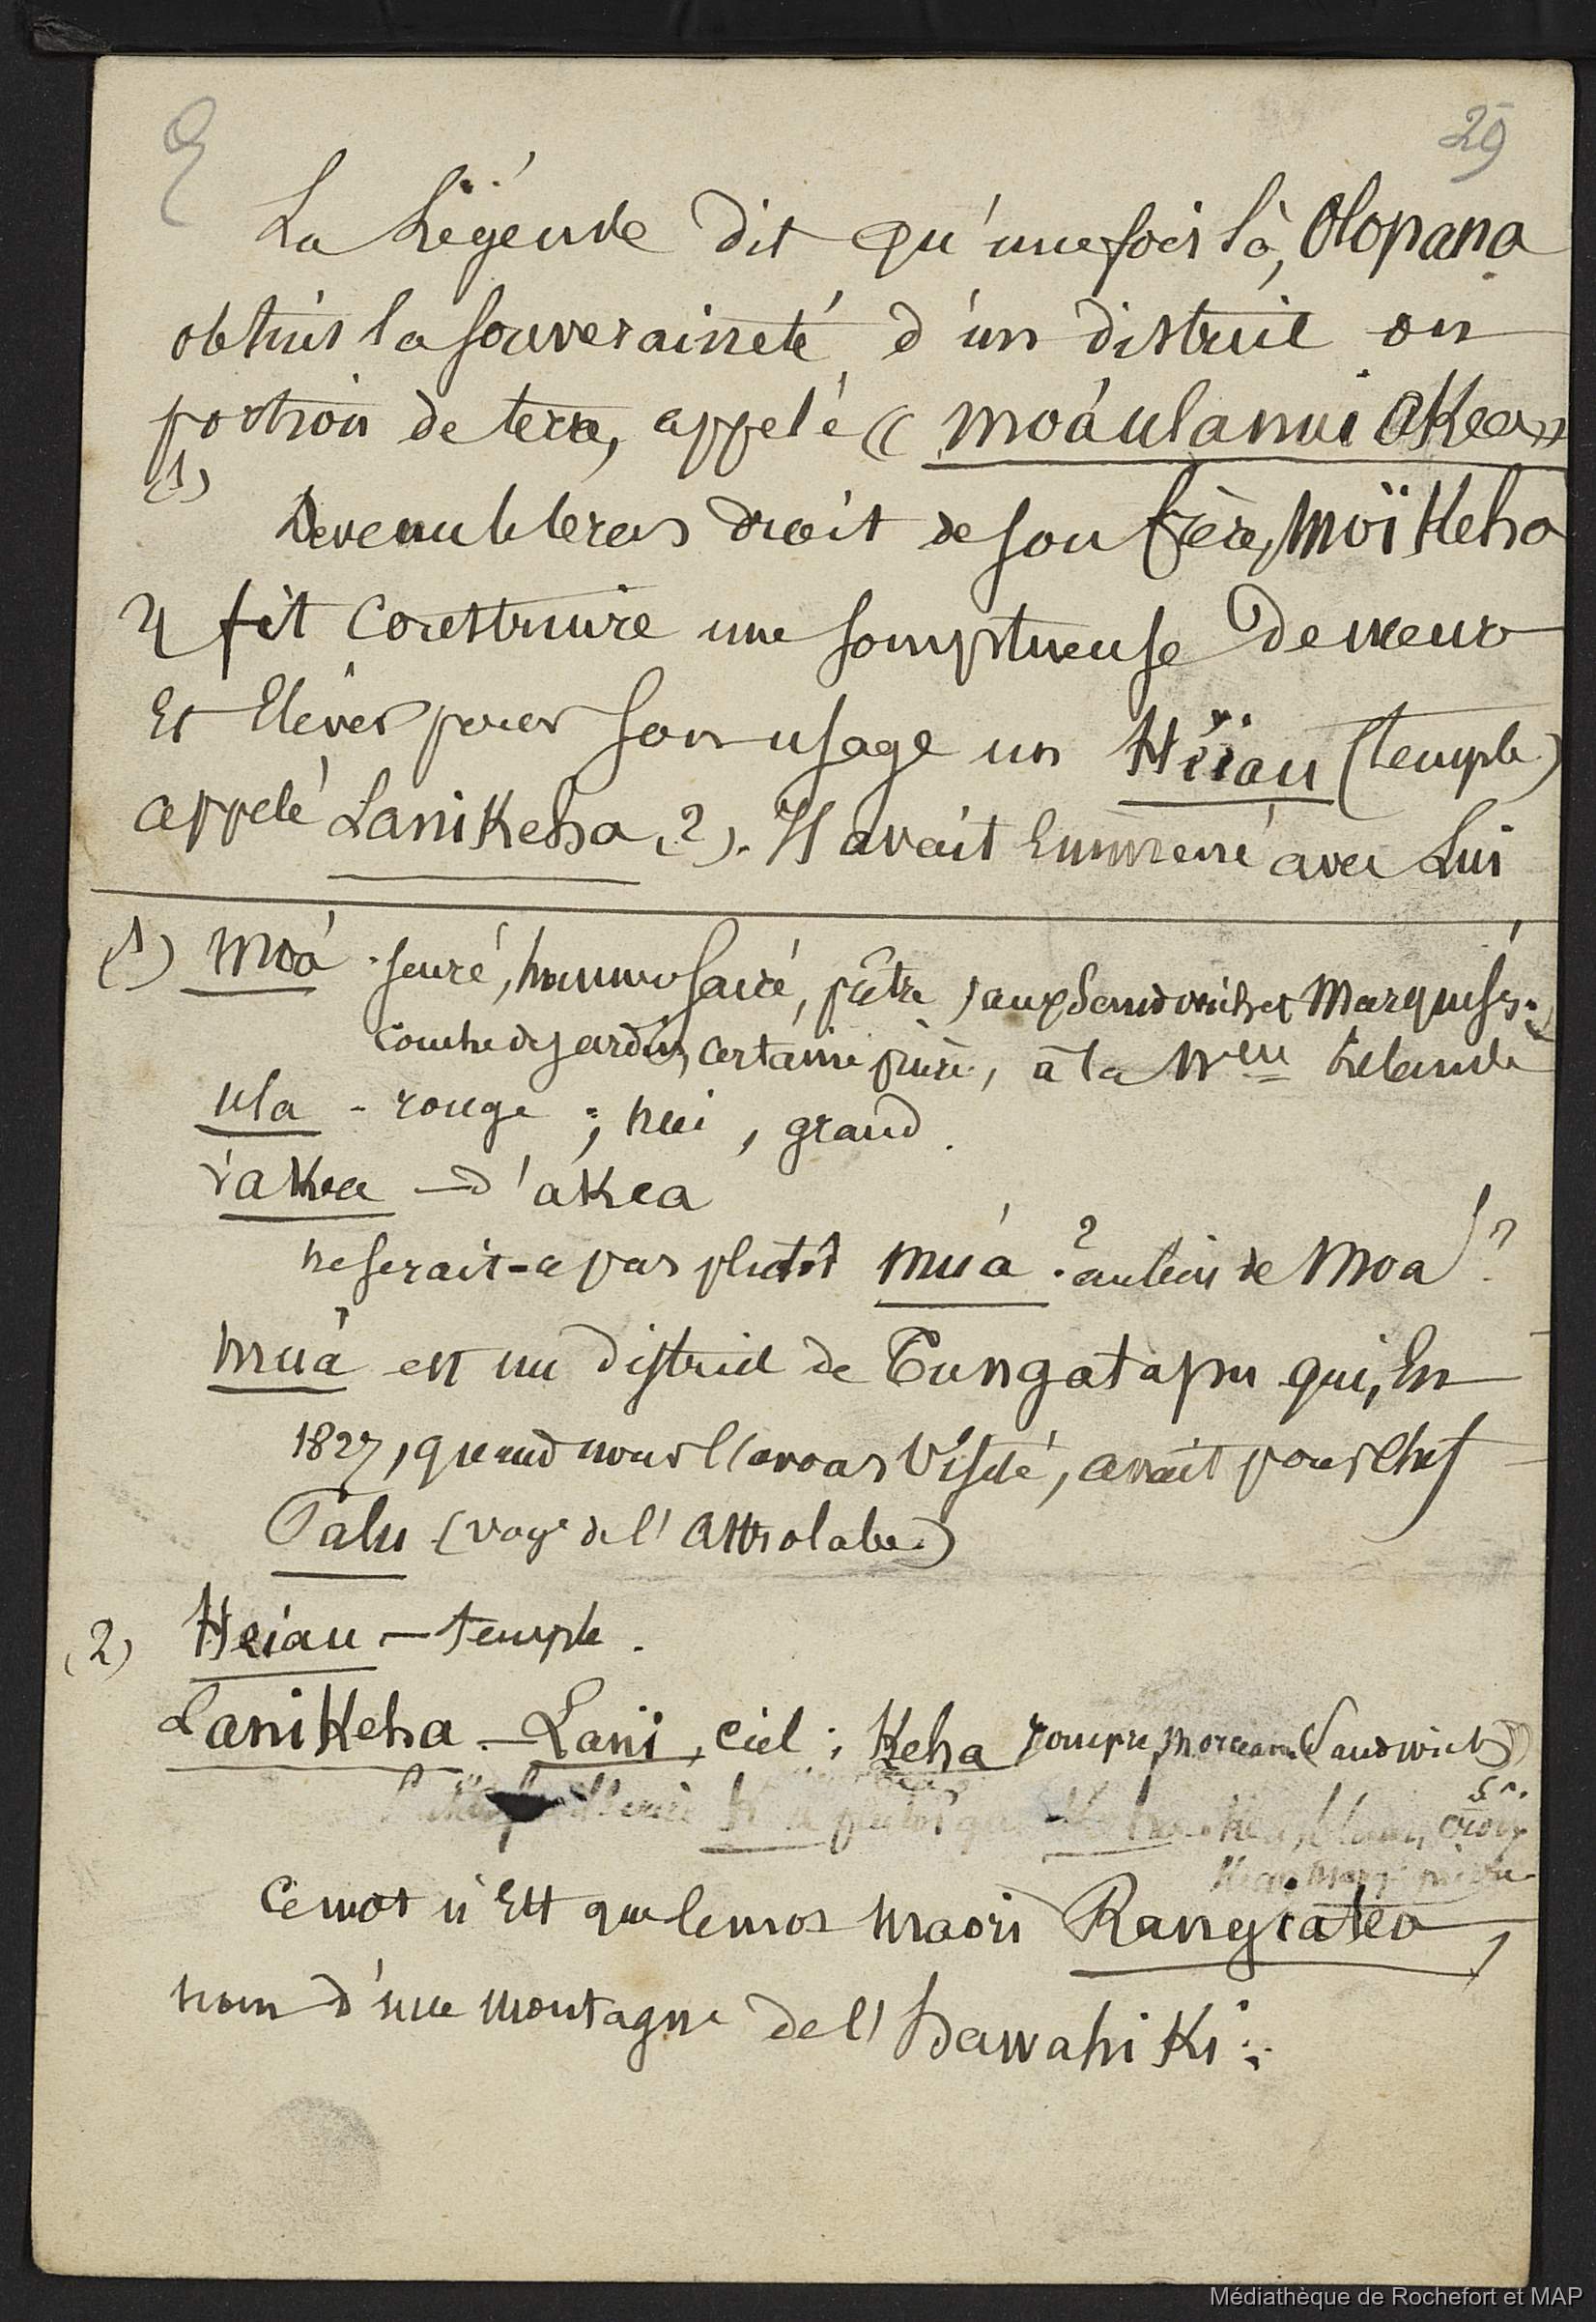 29
La Légende dit qu'une fois là, Olopana
obtint la souveraineté d'un district ou
portion de terre, appelé « Moáulanui Akea »
(1)
Devenu le bras droit de son frère, Moïkeha
y fit construire une somptueuse demeure
Et Elever pour son usage un Hëiau (temple)
appelé Lanikeha (2). Il avait Emmené avec Lui
(1) Moá . sacré, prêtre, aux Sandwich et Marquises.
Couche de jardin, certaine prière, à la Nlle Zélande
ula - rouge ; nui, grand.
i akea — d'akea
ne serait-ce pas plutôt Muá ? au lieu de Moa ?
Muá est un district de Tungatapu qui, En
1827, quand nous l'avons Visité, avait pour chef
Palu (voye de l'Astrolabe)
(2) Heiau — temple.
Lanikeha - Lani, ciel ; Keha rompre, morceau (Sandwich)
Ce mot n'Est que le mot Maori Rangiatea,
nom d'une montagne de l'Hawahiki.
Médiathèque de Rochefort et MAP